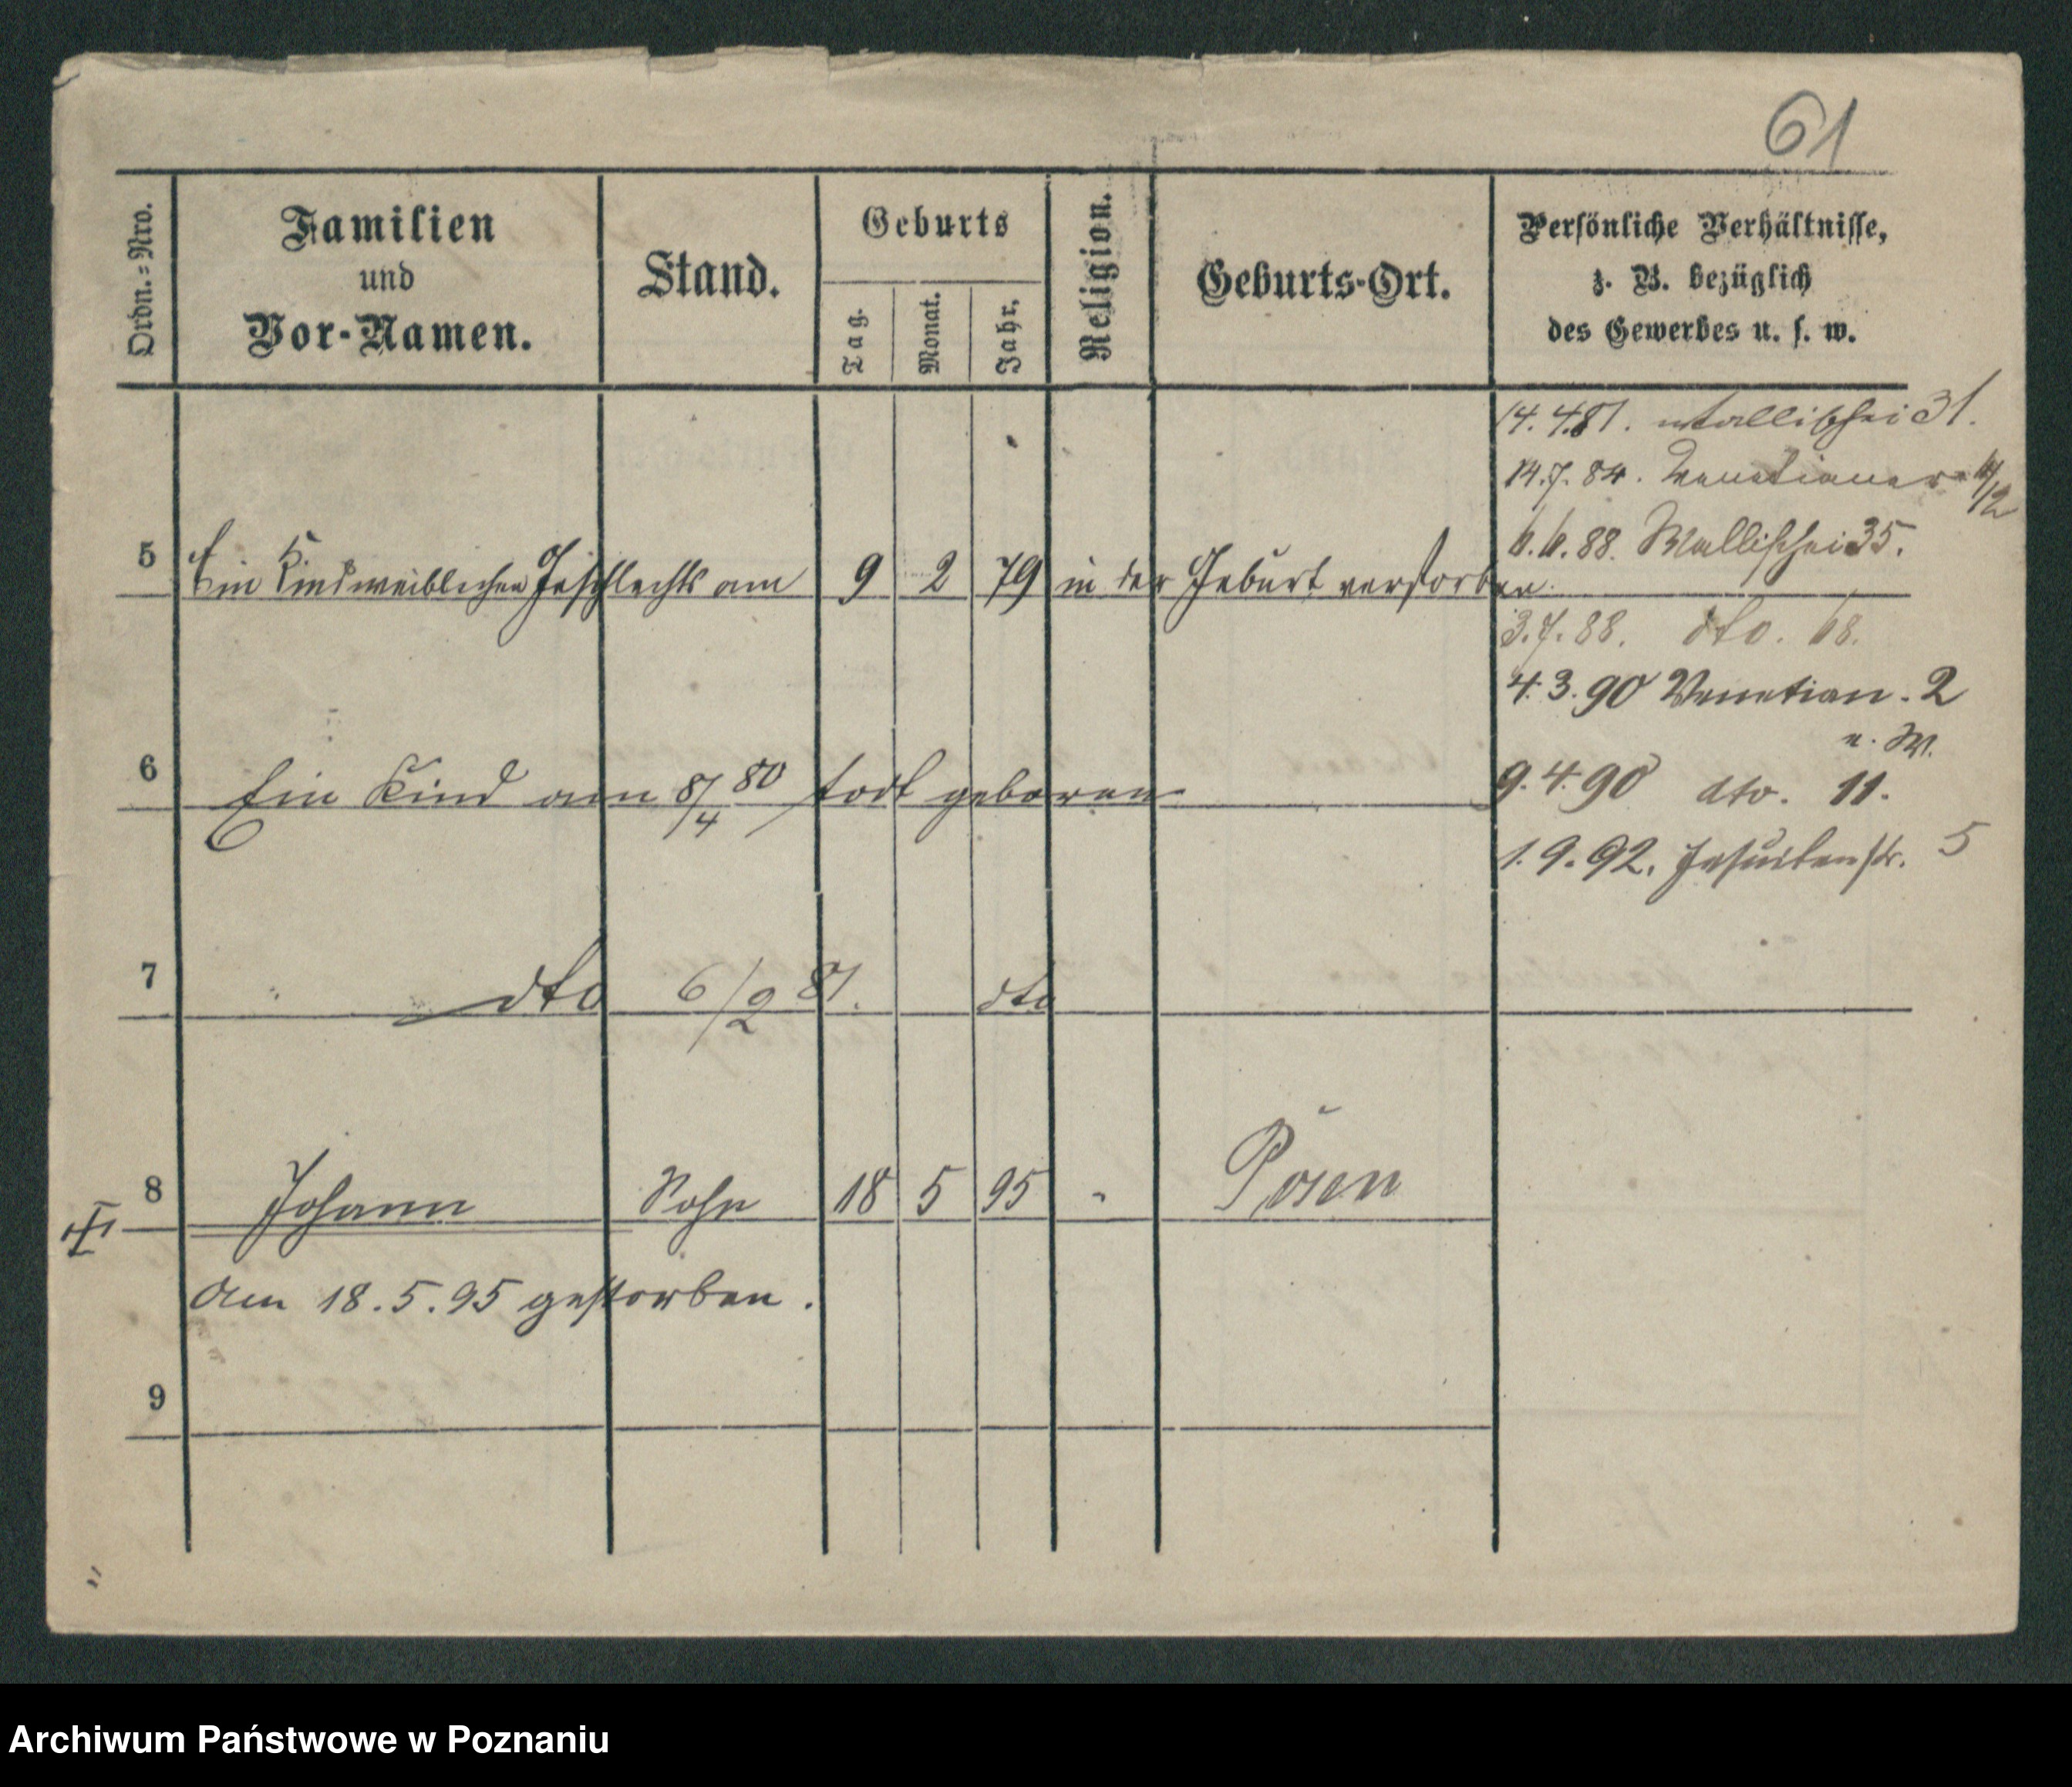 61
Ordn.=Nro.
Familien
und
Vor-Namen.
Stand.
Geburts
Tag.
Monat.
Jahr.
Religion.
Geburts-Ort.
Persönliche Verhältnisse,
z. B. bezüglich
des Gewerbes u. s. w.
14.4.81. Wallischei 31.
14.7.84. Venetianer
6.6.88. Wallischei 35.
5 Ein Kind weiblichen Geschlechts am 9 2 79 in der Geburt verstorben.
3.7.88. dto. 68.
4.3.90 Venetian. 2
6 Ein Kind am 8/4 80 todt geboren
9.4.90 dto. 11.
1.9.92. Jesuitenstr. 5
7 dto 6/2 81. dto
8 Johann Sohn 18 5 95 " Posen
am 18.5.95 gestorben.
9
Archiwum Państwowe w Poznaniu